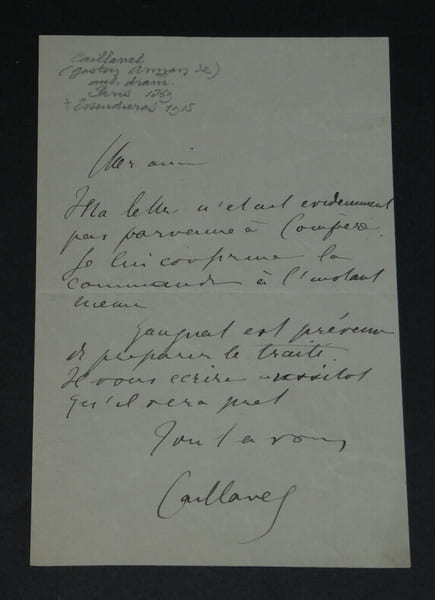 Caillavet
(Gaston Arman de)
aut. dram.
Paris 1869
+ Essendiéras 1915
Cher ami
Ma lettre n'etait evidemment
pas parvenue à Compère.
Je lui confirme la
commande à l'instant
meme
Gangnat est prévenu
de préparer le traité.
Je vous ecrire aussitot
qu'il sera pret
Tout a vous
Caillavet